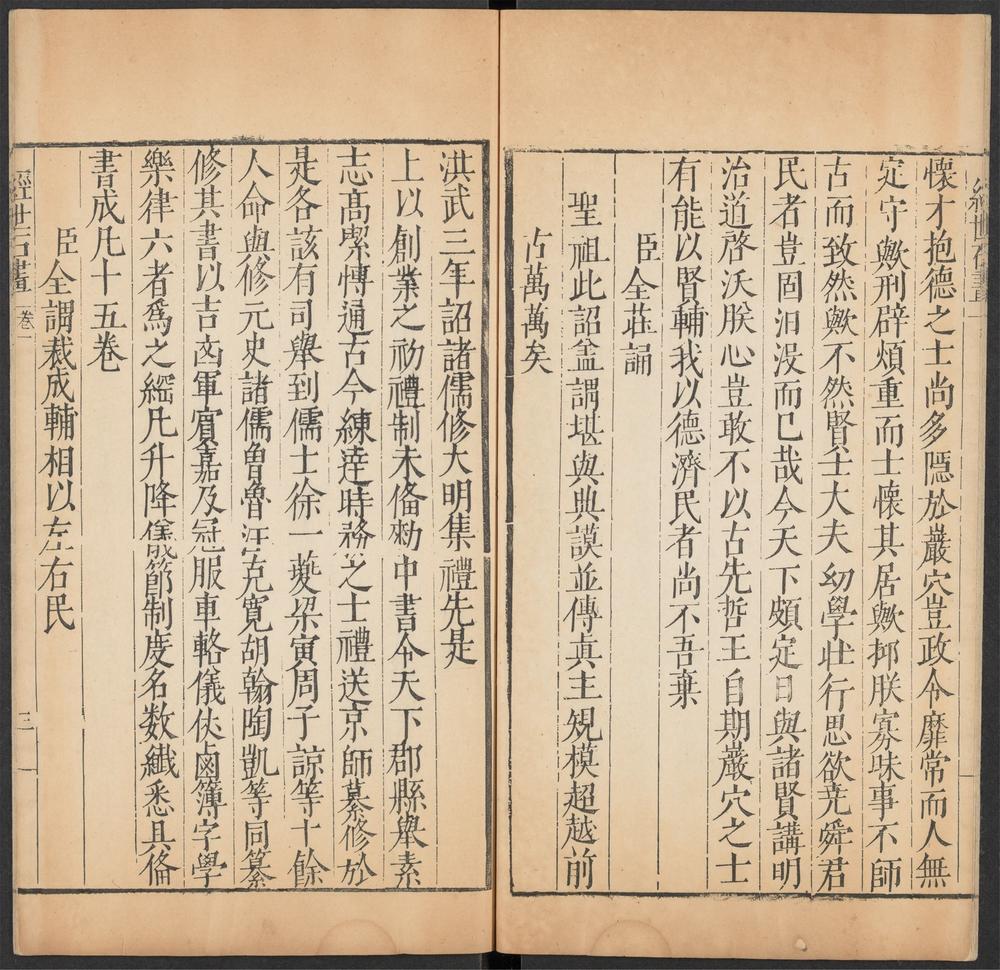 懷才抱德之士尚多隱於巖穴豈政令靡常而人無
定守歟刑辟煩重而士懷其居歟抑朕寡昧事不師
古而致然歟不然賢士大夫幼學壯行思欲堯舜君
民者豈固汨沒而已哉今天下頗定日與諸賢講明
治道啓沃朕心豈敢不以古先哲王自期巖穴之士
有能以賢輔我以德濟民者尚不吾棄
臣全莊誦
聖祖此詔盖謂堪與典謨並傳真主規模超越前
占萬萬矣
洪武三年詔諸儒修大明集禮先是
上以創業之初禮制未俻勑中書令天下郡縣舉素
志高潔慱通古今練達時務之士禮送京師纂修於
是各該有司舉到儒士徐一夔梁寅周子諒等十餘
人命與修元史諸儒曾魯汪克寬胡翰陶凱等同纂
修其書以吉凶軍賓嘉及冠服車輅儀仗鹵簿字學
樂律六者爲之綱凡升降儀節制度名数纖悉具俻
書成凡十五卷
臣全謂裁成輔相以左右民
經世石畫
卷一
三